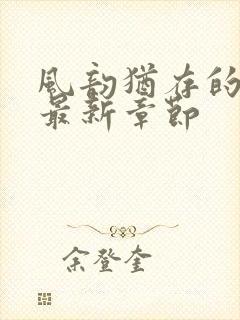 风韵犹存的
最新章节
余登奎